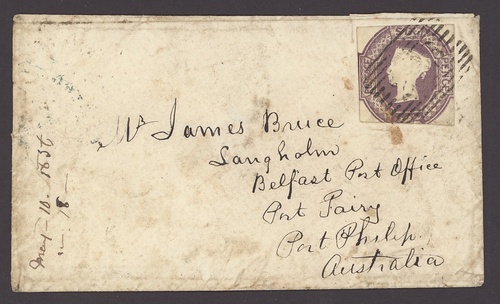 Mr James Bruce
Langholm
Belfast Post Office
Port Fairy
Port Philip
Australia
May 10 - 1852